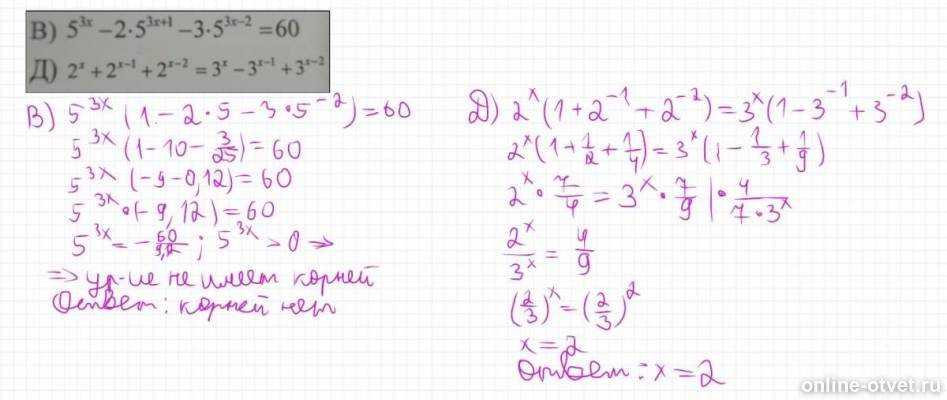 В) 5^{3x} – 2·5^{3x+1} – 3·5^{3x–2} = 60
Д) 2^x + 2^{x–1} + 2^{x–2} = 3^x – 3^{x–1} + 3^{x–2}
В) 5^{3x} (1 – 2·5 – 3·5^{-2}) = 60
5^{3x} (1 – 10 – 3/25) = 60
5^{3x} (–9 – 0,12) = 60
5^{3x} · (–9,12) = 60
5^{3x} = – 60/9,12 ; 5^{3x} > 0 ⇒
⇒ ур-ие не имеет корней
Ответ: корней нет
Д) 2^x (1 + 2^{-1} + 2^{-2}) = 3^x (1 – 3^{-1} + 3^{-2})
2^x (1 + 1/2 + 1/4) = 3^x (1 – 1/3 + 1/9)
2^x · 7/4 = 3^x · 7/9 | · 4/(7·3^x)
2^x/3^x = 4/9
(2/3)^x = (2/3)^2
x = 2
Ответ: x = 2
online-otvet.ru